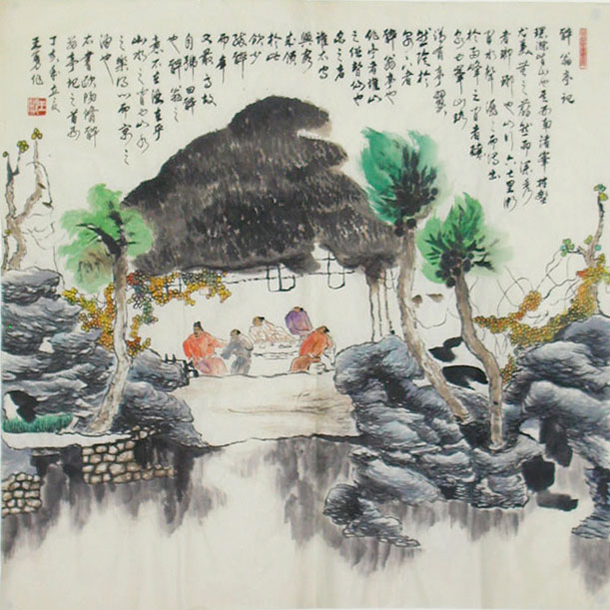 醉翁亭记
環滁皆山也其西南諸峰林壑
尤美望之蔚然而深秀
者瑯琊也山行六七里漸
水聲潺之而瀉出
於兩峰之間者釀
泉也峰回路
有亭翼
然臨於
泉之者
醉翁亭也
作亭者誰山
之僧智仙也
名之者
誰太守
與客
來飲
於此
飲少
輒醉
而年
又最高故
自號曰醉
也醉翁之
意不在酒在乎
山水之間也山水
之樂得心而寓之
酒也
右書歐陽脩醉
翁亭記之首句
丁亥年